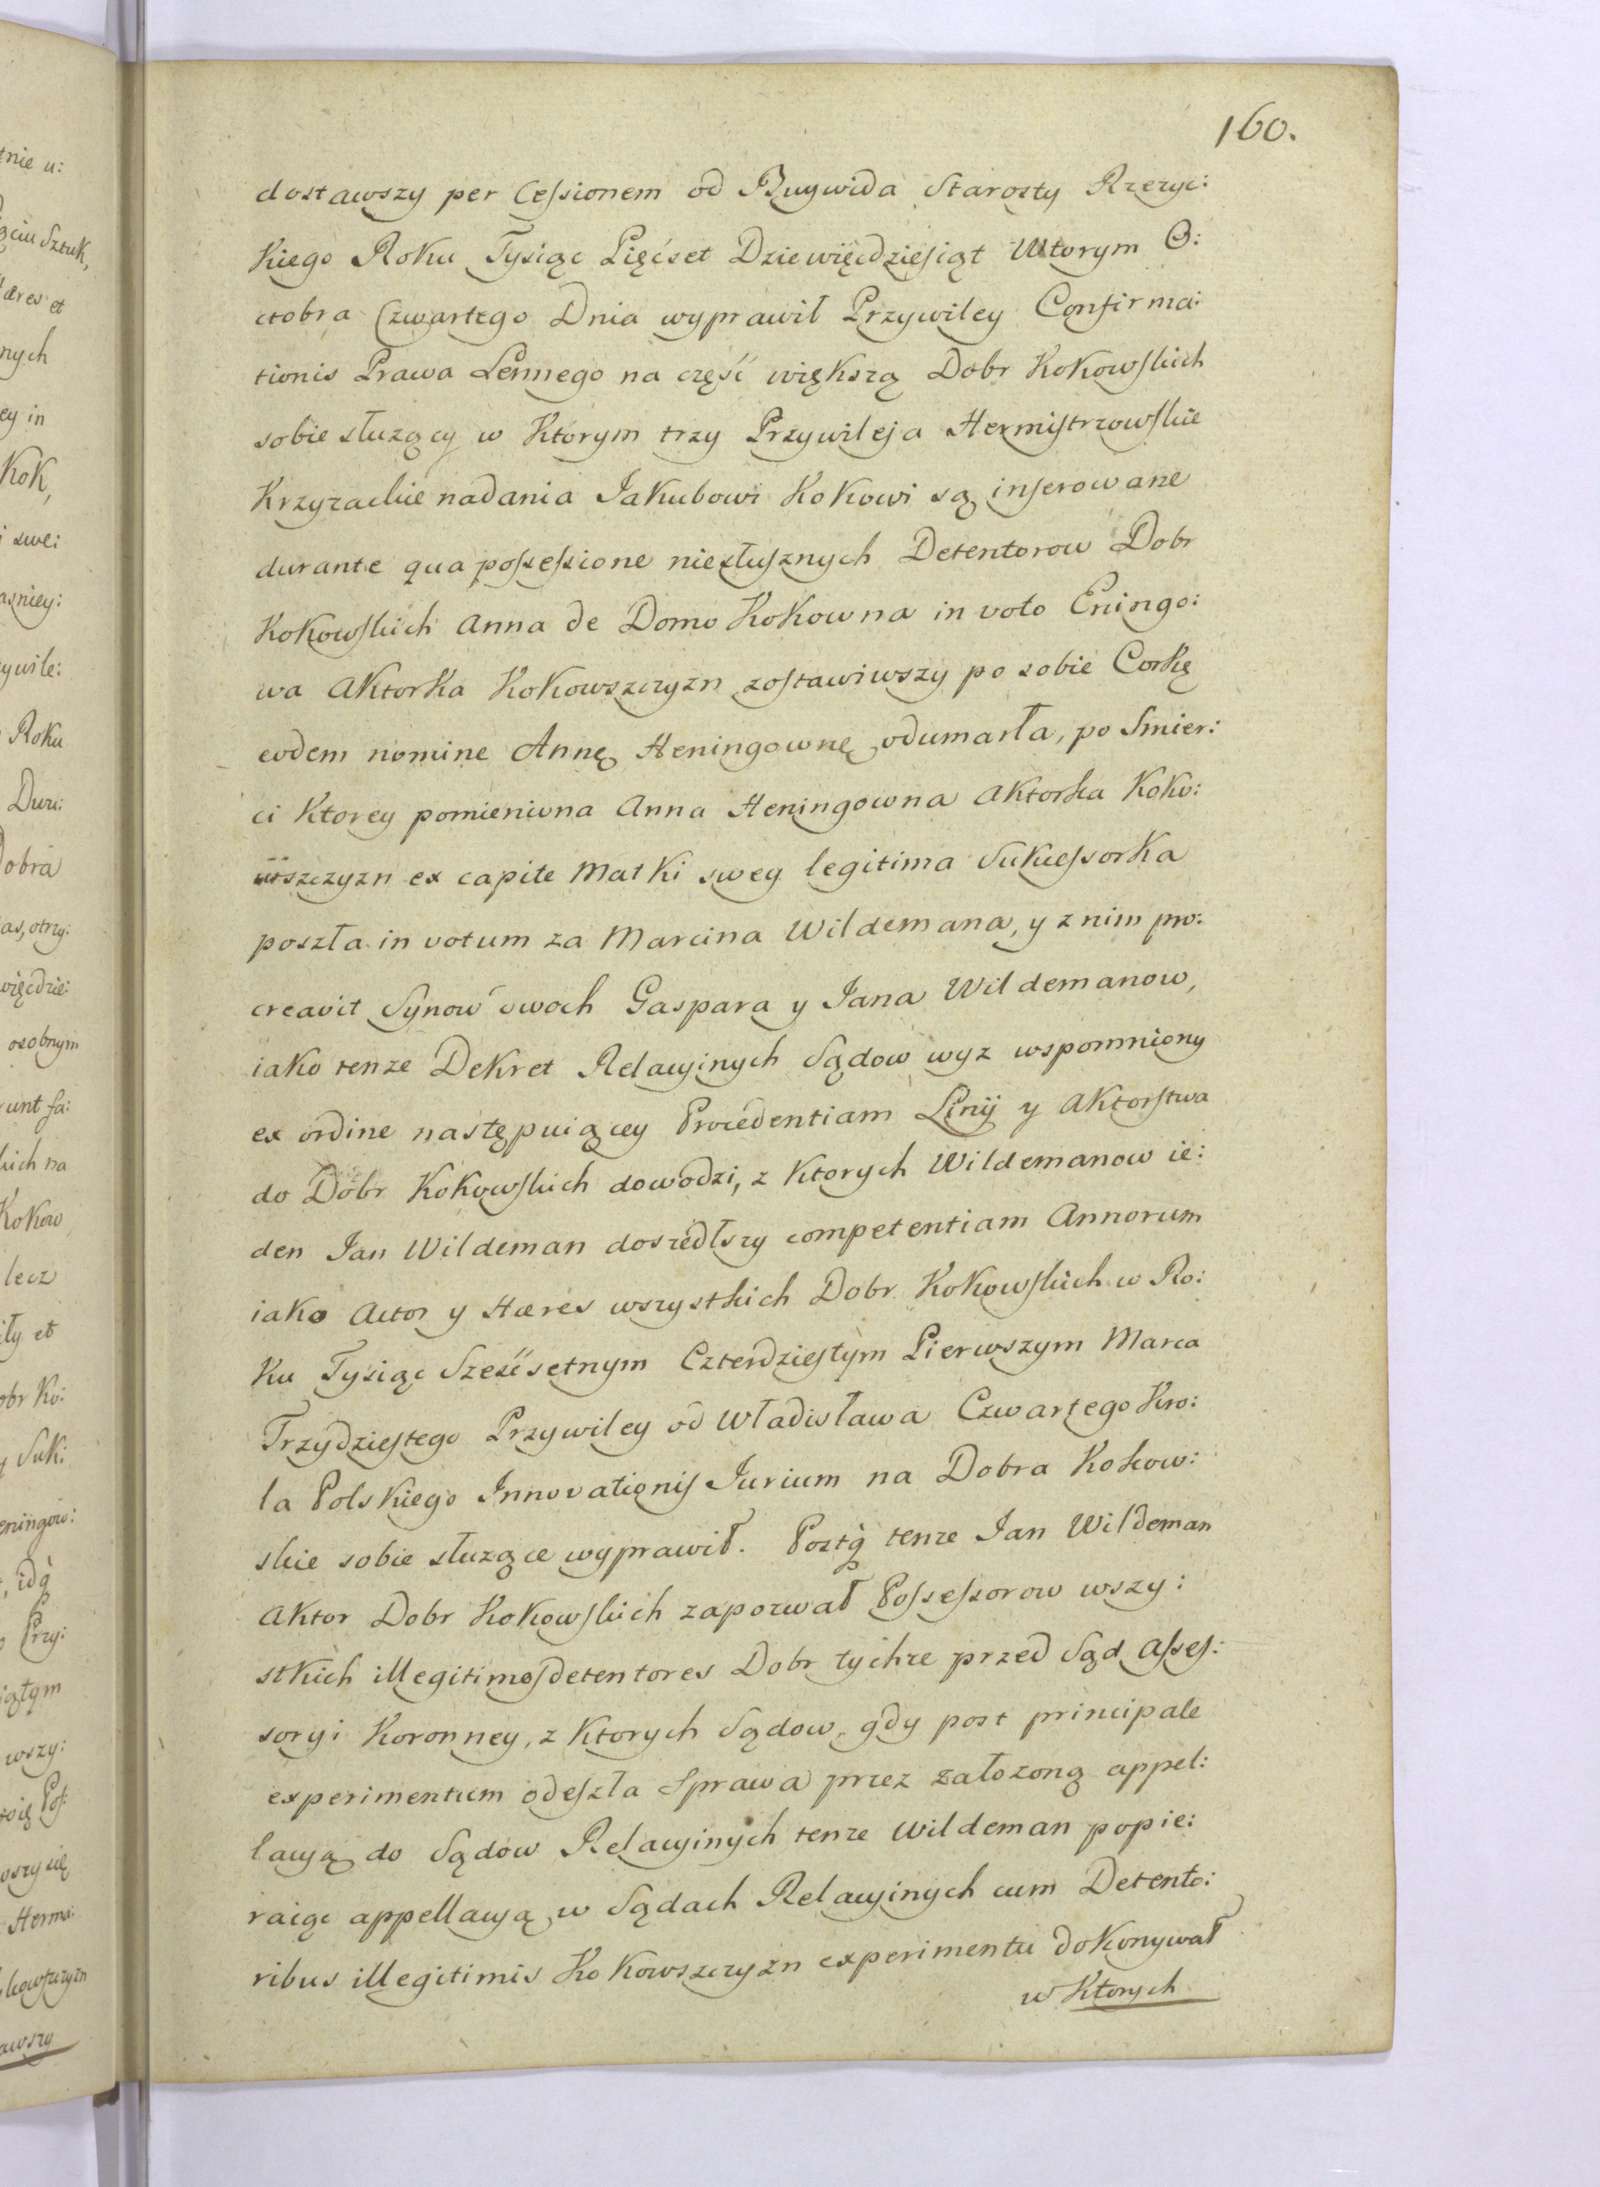 160.
dostawszy per Cessionem od Rugwida Starosty Rzezyc:
kiego Roku Tysiąc Pięćset Dziewięćdziesiąt Wtorym O:
ctobra Czwartego Dnia wyprawił Przywiley Confirma:
tionis Prawa Lennego na część większą Dobr Kokowskich
sobie służący w Ktorym trzy Przywileja Hermistrzowskie
Krzyzackie nadania Jakubowi Kokowi są inserowane
durante qua possessione niesłusznych Detentorow Dobr
Kokowskich Anna de Domo Kokowna in voto Eningo:
wa Aktorka Kokowszczyzn zostawiwszy po sobie Corkę
eodem nomine Annę Heningownę odumarła, po Smier:
ci Ktorey pomieniona Anna Heningowna Aktorka Koko:
wszczyzn ex capite Matki swey legitima Sukcessorka
poszła in votum za Marcina Wildemana, y z nim pro:
creavit Synow dwoch Gaspara y Jana Wildemanow,
iako tenze Dekret Relacyinych Sądow wyz wspomniony
ex ordine następuiącey Procedentiam Linij y Aktorstwa
do Dobr Kokowskich dowodzi, z Ktorych Wildemanow ie:
den Jan Wildeman doszedłszy competentiam Annorum
iako Actor y Hæres wszystkich Dobr Kokowskich w Ro:
ku Tysiąc Sześćsetnym Czterdziestym Pierwszym Marca
Trzydziestego Przywiley od Władisława Czwartego Kro:
la Polskiego Innovationis Jurium na Dobra Kokow:
skie sobie służące wyprawił. Poztą tenze Jan Wildeman
Aktor Dobr Kokowskich zapozwał Possessorow wszy:
stkich illegitimos detentores Dobr tychze przed Sąd Asses:
soryi Koronney, z Ktorych Sądow, gdy post principale
experimentum odeszła Sprawa przez założoną appel:
lacyą do Sądow Relacyinych tenze Wildeman popie:
raiąc appellacyą w Sądach Relacyinych cum Detento:
ribus illegitimis Kokowszczyzn experimentu dokonywał
w Ktorych
tnie u:
Sztuk,
æres et
nych
ey in
Kok,
swe:
asniey:
ywile:
Roku
Dwu:
Dobra
as, otrzy:
więcdzie:
osobnym
runt fa:
kich na
Kokow
lecz
iły et
obr Ko:
y Suk:
eningow:
, idą
Przy:
iątym
wszy:
Pos:
wszy się
Herms:
kowszczyzn
awszy